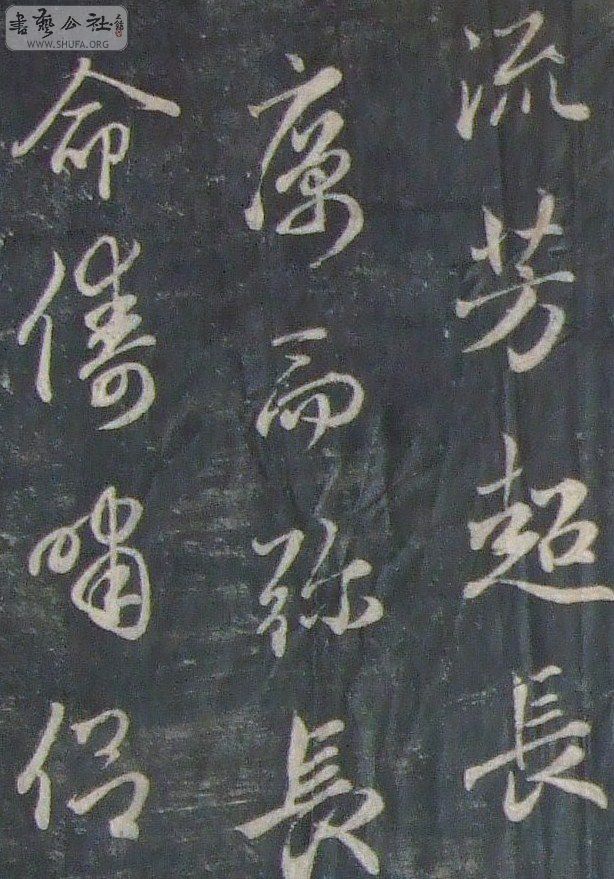 書藝公社
WWW.SHUFA.ORG
流芳超長
厲而弥長
命儔嘯侣